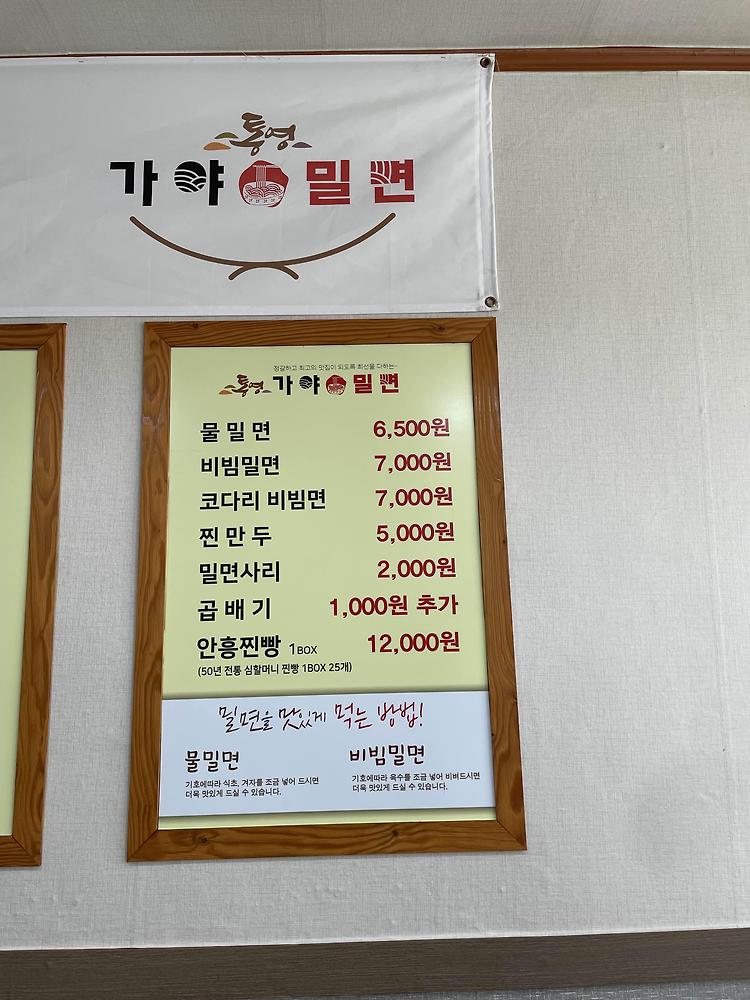 통영
가야밀면
정갈하고 최고의 맛집이 되도록 최선을 다하는~
통영 가야밀면
물밀면 6,500원
비빔밀면 7,000원
코다리 비빔면 7,000원
찐만두 5,000원
밀면사리 2,000원
곱배기 1,000원 추가
안흥찐빵 1BOX 12,000원
(50년 전통 심할머니 찐빵 1BOX 25개)
밀면을 맛있게 먹는 방법!
물밀면
기호에따라 식초, 겨자를 조금 넣어 드시면
더욱 맛있게 드실 수 있습니다.
비빔밀면
기호에따라 육수를 조금 넣어 비벼드시면
더욱 맛있게 드실 수 있습니다.